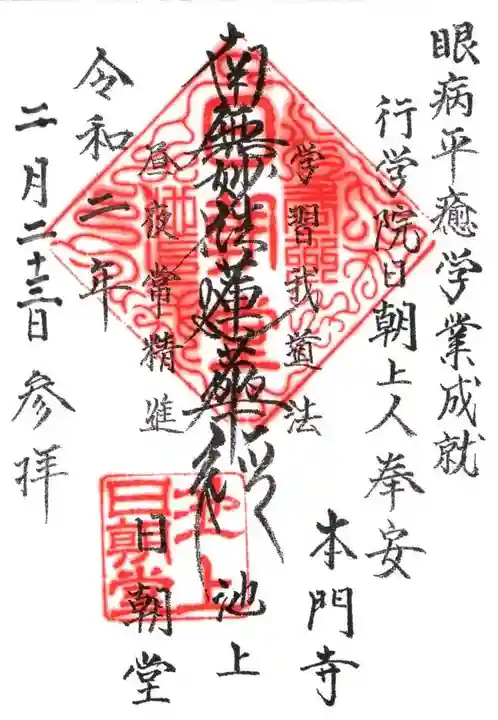 眼病平癒学業成就
行学院日朝上人奉安
学習我道法
南無妙法蓮華経
昼夜常精進
令和二年
二月二十三日 参拝
本門寺
池上
日朝堂
池上
日朝堂